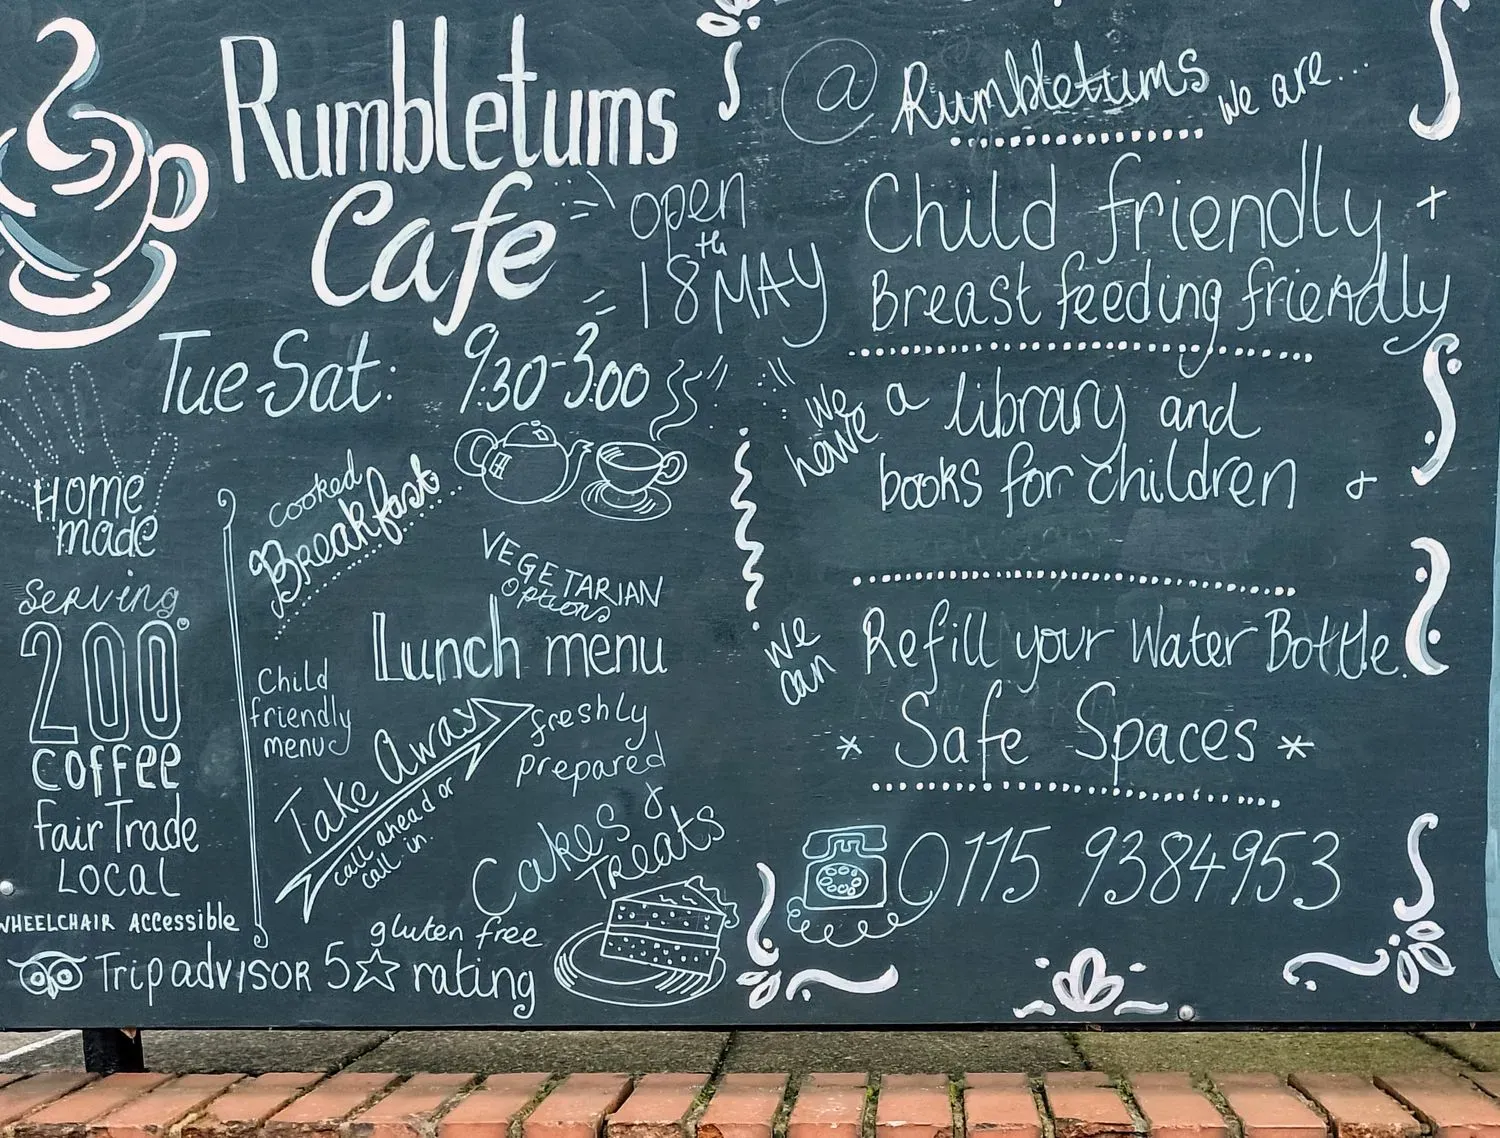 Rumbletums
Cafe
open
18th MAY
Tue-Sat: 9.30-3.00
HOME
made
Serving
200°
coffee
fairTrade
LOCAL
WHEELCHAIR Accessible
Tripadvisor 5☆ rating
cooked
Breakfast
VEGETARIAN
Options
Lunch menu
Child
friendly
menu
Take Away
call ahead or
call in.
freshly
prepared
Cakes &
Treats
gluten free
@ Rumbletums we are...
Child friendly +
Breast feeding friendly
we
have
a library and
books for children &
we
can
Refill your Water Bottle.
* Safe Spaces *
0115 9384953